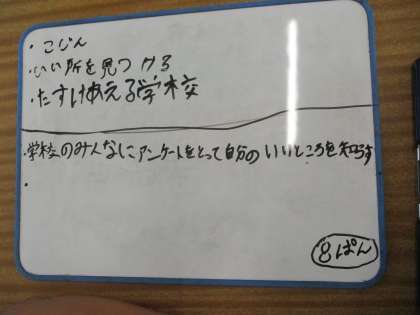 ・こじん
・いい所を見つける
・たすけあえる学校
・学校のみんなにアンケートをとって自分のいいところを知らす
・
8ぱん